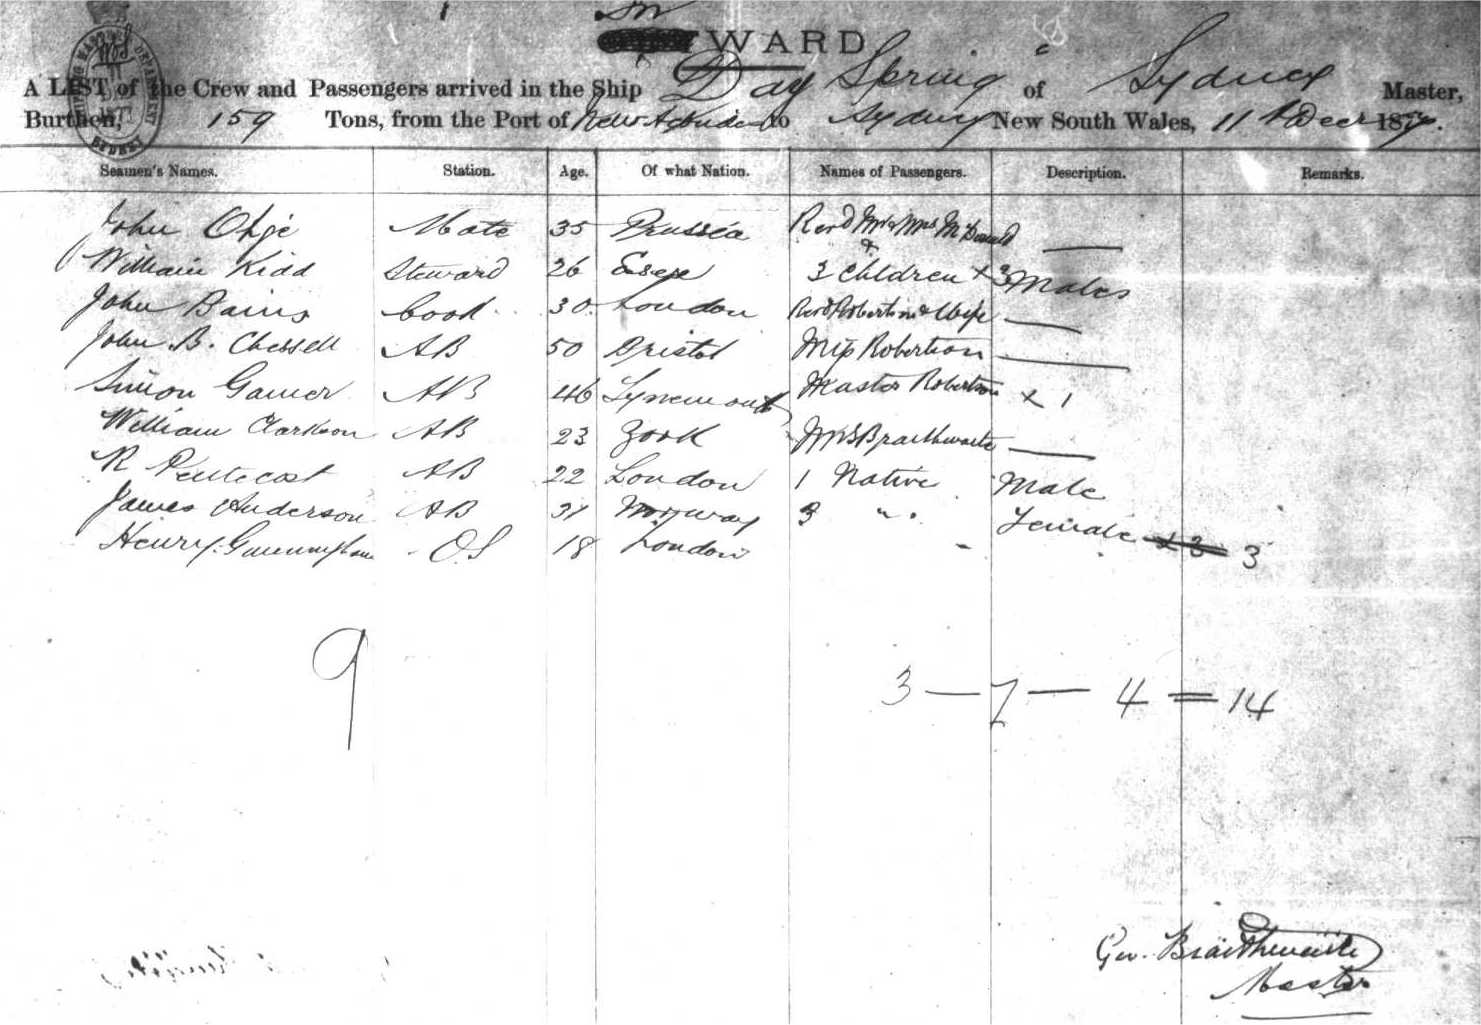 In
WARD
A LIST of the Crew and Passengers arrived in the Ship Day Spring of Sydney Master,
Burthen, 159 Tons, from the Port of New Hebrides to Sydney New South Wales, 11th Decr 187
Seamen's Names. Station. Age. Of what Nation. Names of Passengers. Description. Remarks.
John Mate 35 Prussia Revd Mr & Mrs McDonald
&
William Kidd Steward 26 Essex 3 Children × 3 Males
John Bains Cook 30 London Revd Robertson & Wife
John B. Chessell AB 50 Bristol Miss Robertson
Simon AB 46 Master Robertson × 1
William Clarkson AB 23 York Mrs Braithwaite
R Pentecost AB 22 London 1 Native Male
James Anderson AB 31 Norway 3 " Female × 3 3
Henry OS 18 London
9
3 — 7 — 4 = 14
Geo. Braithwaite
Master